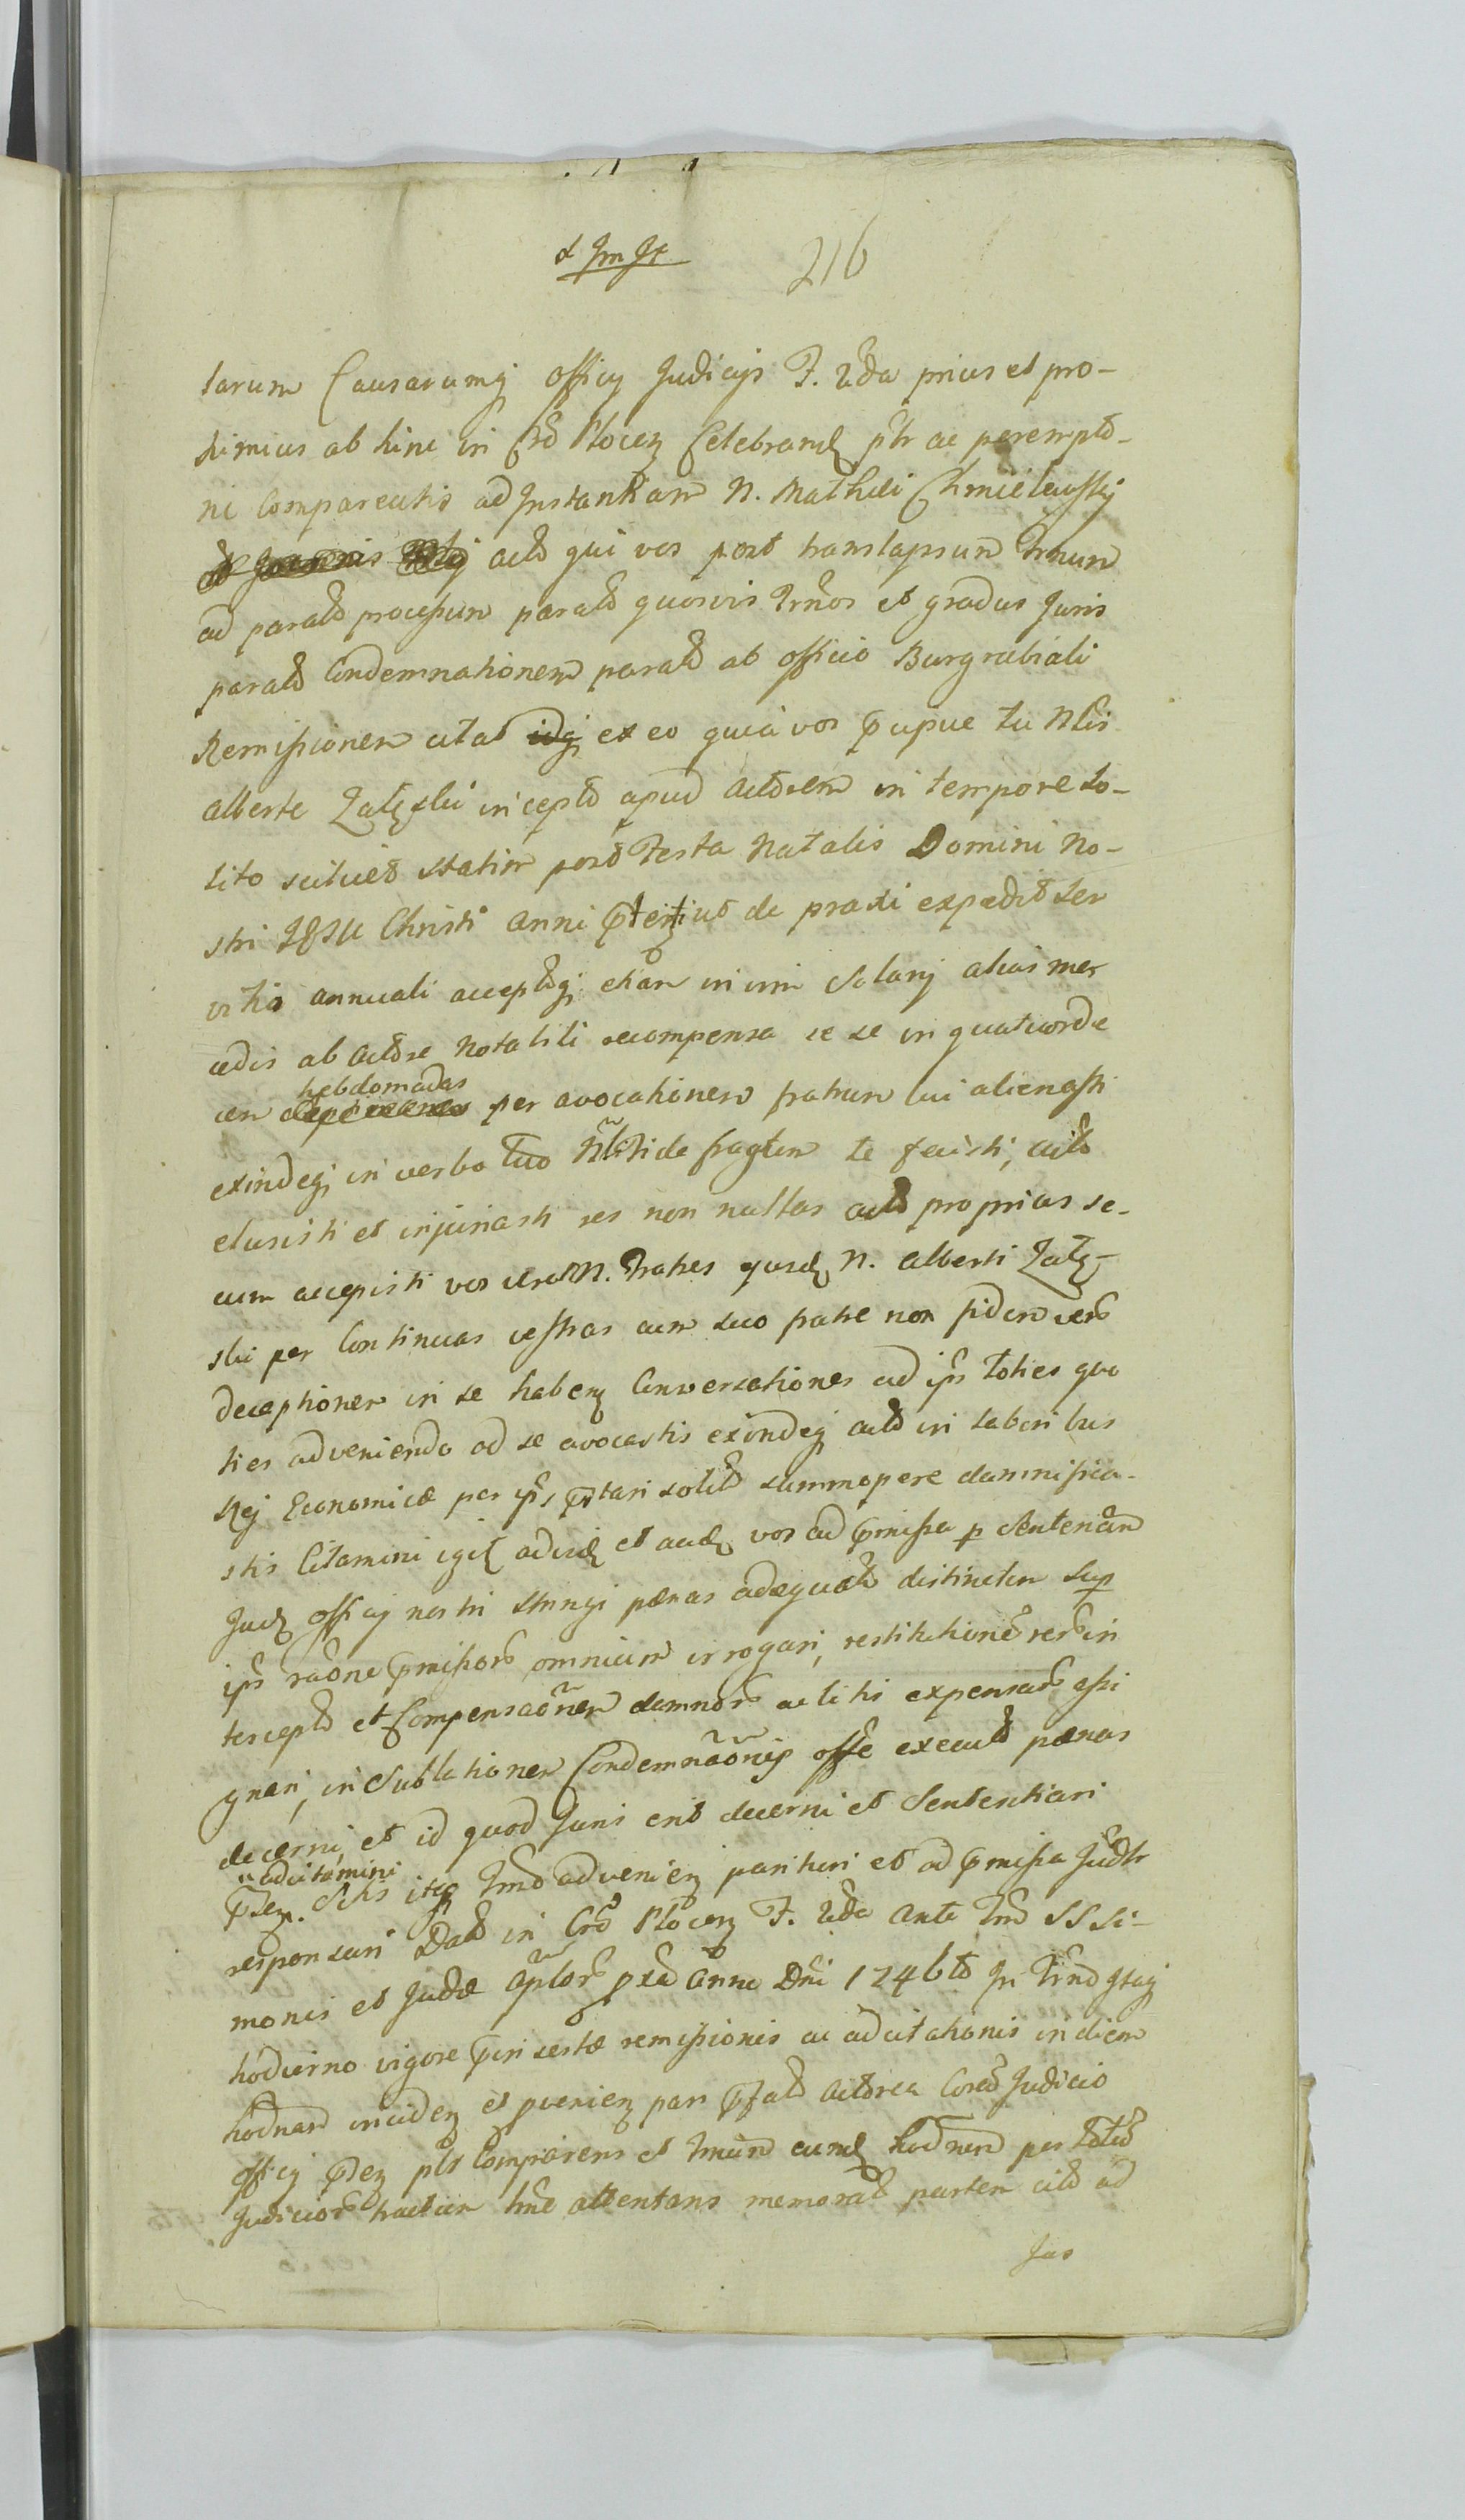 216
tarum Causarumq officy Judicijs F. 2da prius et pro-
ximius ab hinc in Cro Plocen Celebrand pltr ac perempto-
rie Compareatis ad Instantiam N. Mathei Chmielewsky
acto qui vos post translapsum trnum
ad parato processum parato quosvis Trnos et gradus Juris
parato Condemnationem parato ab officio Burgrabiali
Remissionem citat ex eo quia vos pcipue tu Nlis
Alberte Zale slii incepto apud Actorem in tempore so-
lito scilicet statim post Festa Natalis Domini No-
stri JESU Christi Anni ptent ut de praxi expedit ser
vitio annuali acceptoq etiam in vim Salarij alias mer
cedis ab Actore notabili recompensa se se in quatuorde
hebdomadas
cem per avocationem fratrum tui alienasti
exindeq in verbo tuo Nlitide fragtem te fecisti, acto
elusisti et injuriasti res non nullas acto proprias se-
cum accepisti vos vero N. Fratres ejusd N. Alberti Zale-
slii per Continuas vestras cum suo fratre non fidem vero
deceptionem in se haben Conversationes ad ips toties quo
ties adveniendo ad se avocastis exindeq acto in laboribus
Rej Economicæ per ips pstari solito summopere damnifica-
stis Citamini igit ad vid et aud vos ad pmissa p Sentenam
Jud officy nostri stringi pænas adæquato distinctim sup
ips raone pmissor omnium irrogari, restitutione rer in
tercepto et Compensaonem damnor ac litis expensar assi
gnari, in Sublationem Condemnaonis offe executo pænas
decerni, et id quod Juris erit decerni et Sententiari
adcitamini
psen. Stis itaq Trno advenien parituri et ad pmissa Judtr
responsuri Dat in Cro Plocen F. 2da Ante Fm SS Si-
monis et Judæ Aplor pxa Anno Dni 1746to In Trno Itaq
hodierno vigore pinsertæ remissionis ac adcitationis in diem
hodnam inciden et pvenien pars pfato Actorea Coram Judicio
officy pden pltr Comparens et Trnum eund hodnem per totu
Judicior tractum trne attentans memorato partem cito ad
Jus